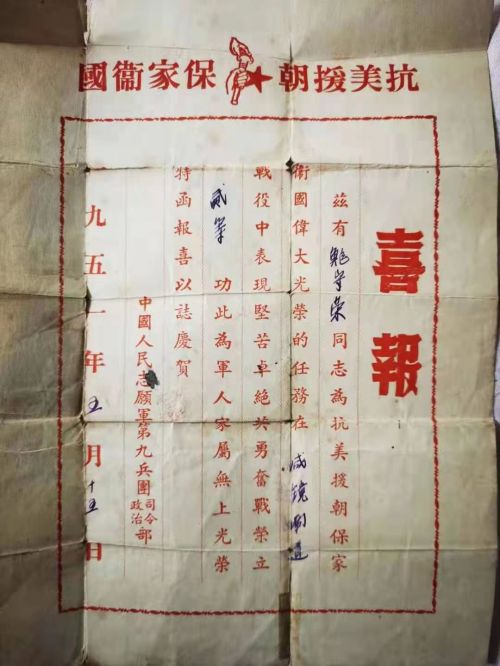 抗美援朝 保家衞國
喜報
茲有鮑學榮同志為抗美援朝保家
衞國偉大光榮的任務在咸鏡南道
戰役中表現堅苦卓絕英勇奮戰榮立
貳等 功此為軍人家屬無上光榮
特函報喜以誌慶賀
中國人民志願軍第九兵團司令政治部
九五一年五月十五日